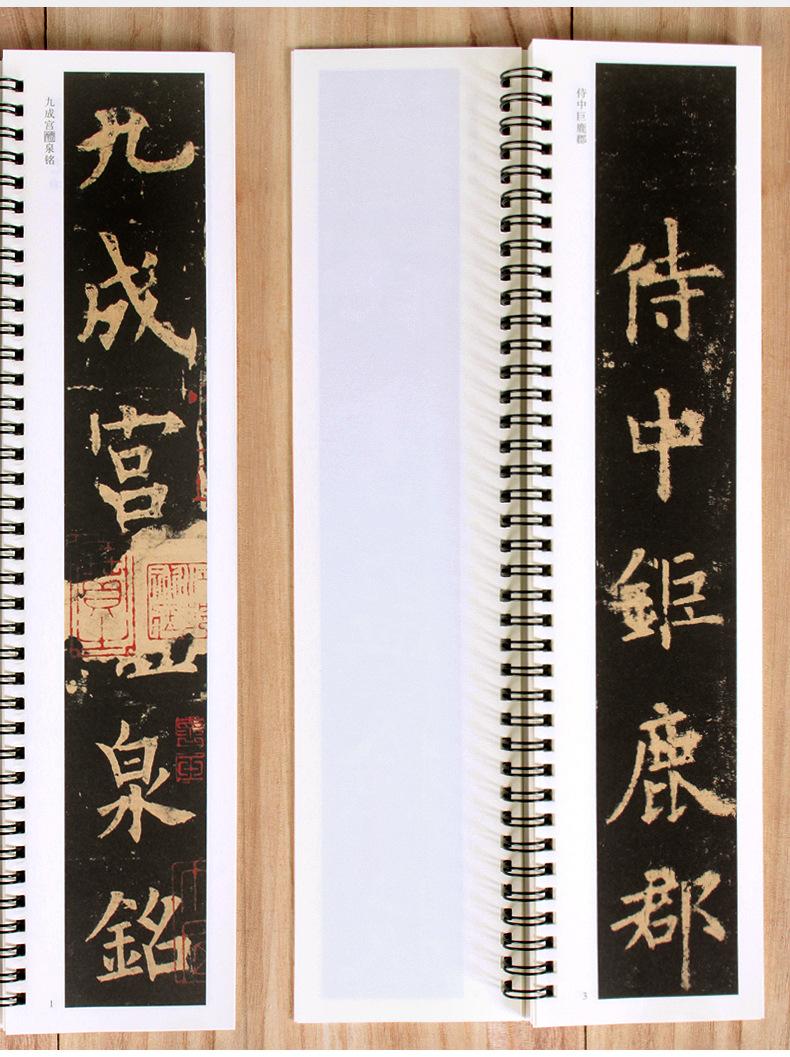 九成宫醴泉铭
九成宮泉銘
1
侍中巨鹿郡
侍中鉅鹿郡
3